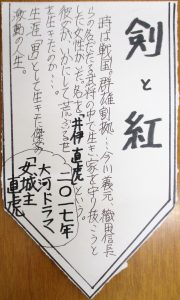 剣と紅
時は戦国。群雄割拠…今川義元、織田信長
らの名だたる武将の中で生き、家を守り抜こうと
した女性がいた。名を井伊直虎という。
彼女がいかにして荒ぶる世
を生きたのか…。
「男」として生きた
波動の人生。
二〇一七年
大河ドラマ、
「女城主
直虎」